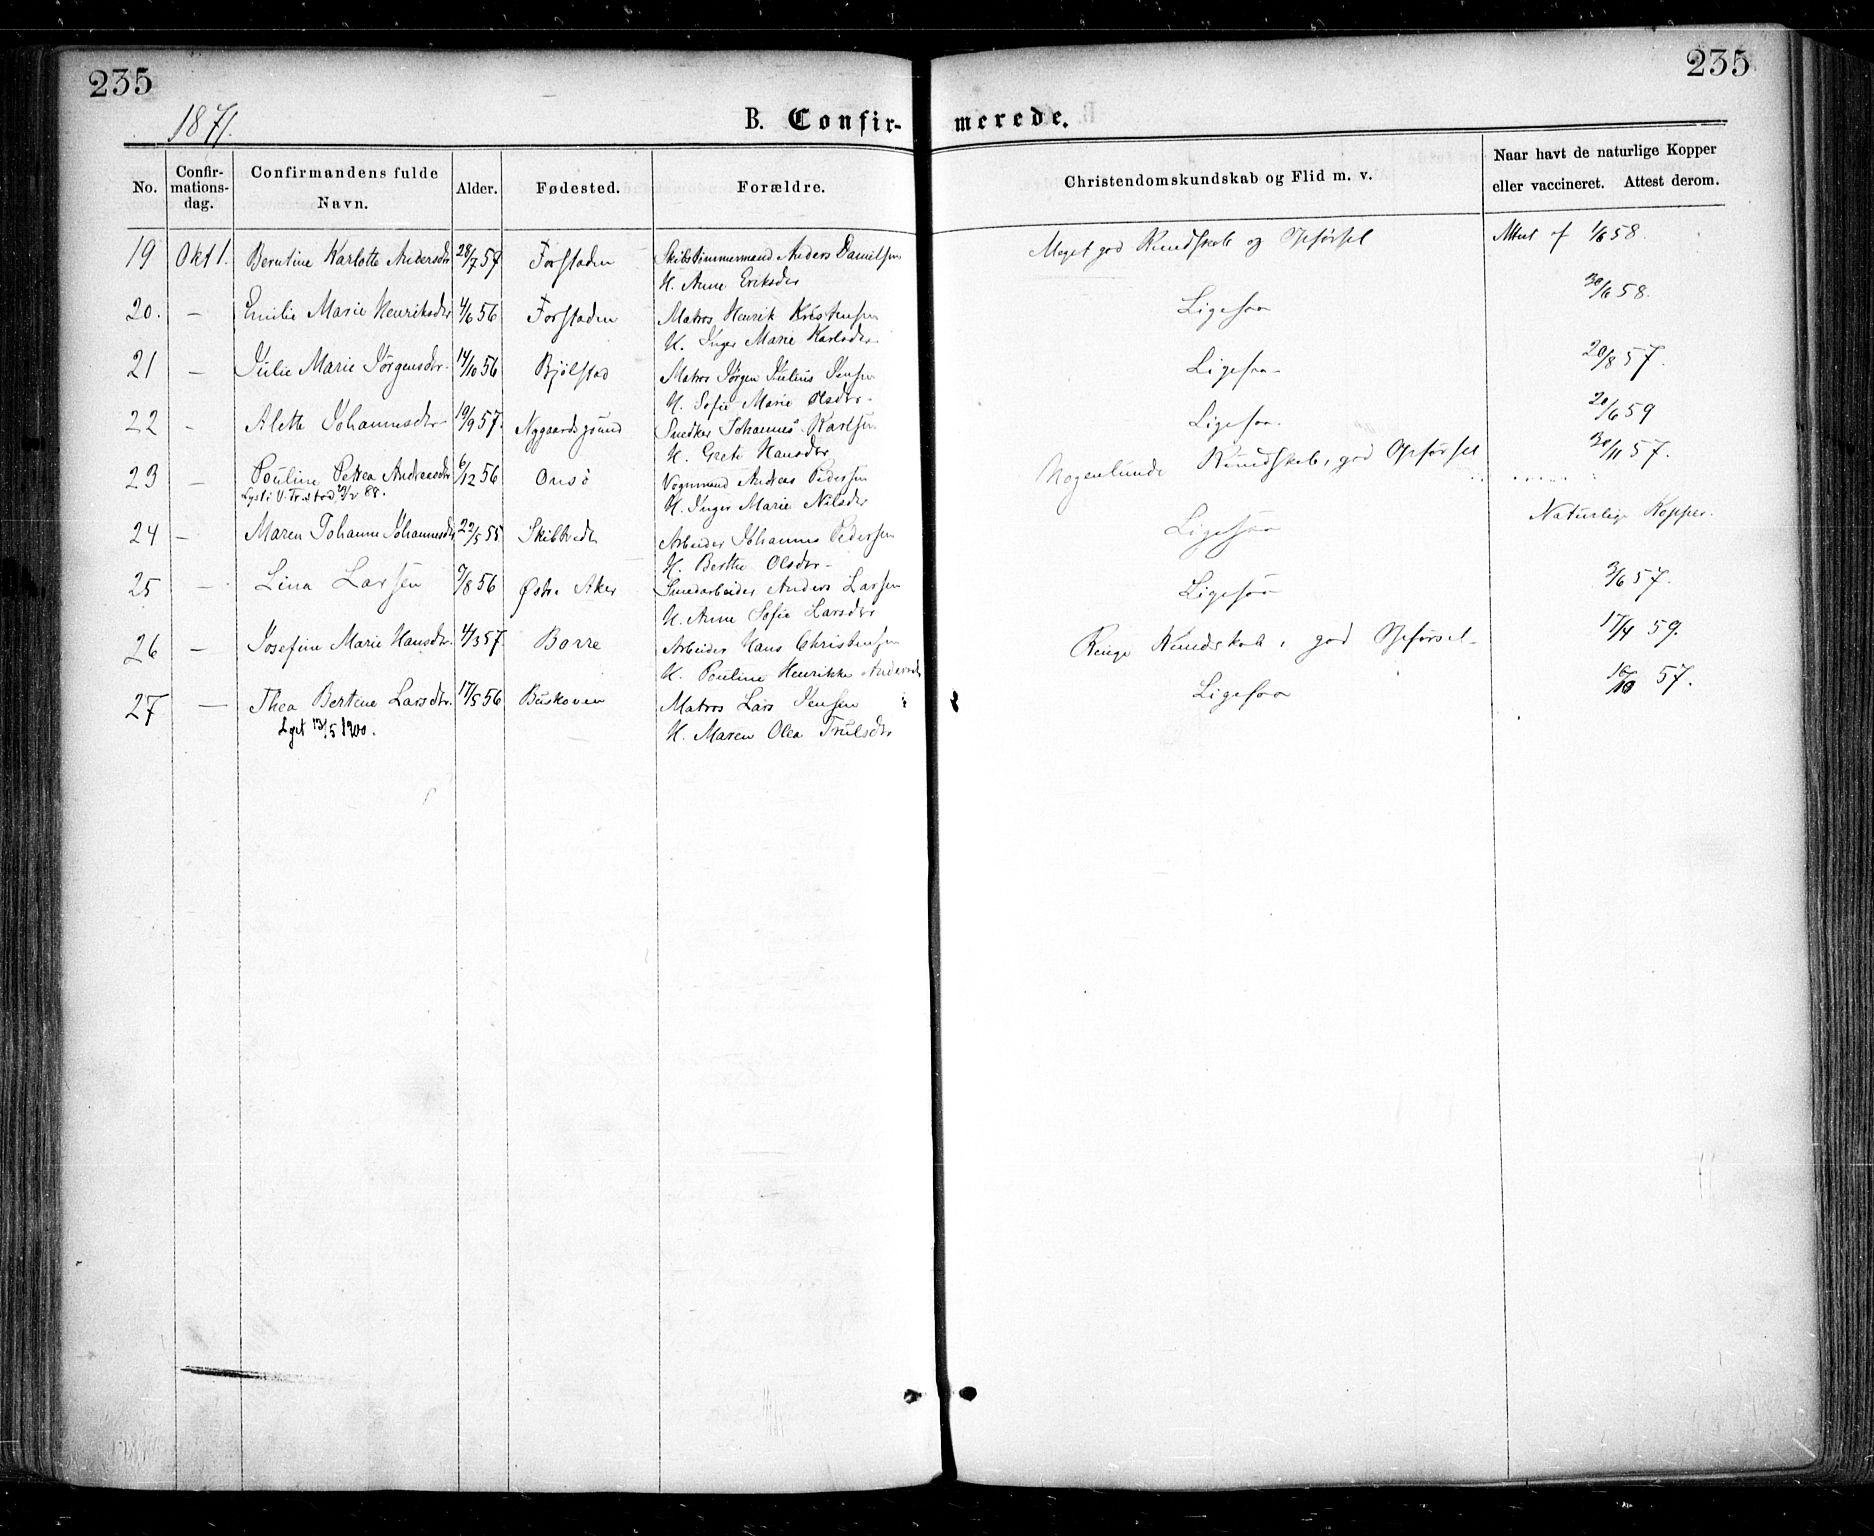 235
235
1871.
B. Confir-merede.
No.
Confir-mations-dag.
Confirmandens fulde Navn.
Alder.
Fødested.
Forældre.
Christendomskundskab og Flid m. v.
Naar havt de naturlige Kopper eller vaccineret. Attest derom.
19 Okt 1. Berntine Karlotte Andersdtr 28/7 57 Forstaden Skibstimmermand Anders Danielsen Meget god Kundskab og Opførsel Attest af 1/6 58.
H. Anne Eriksdtr
20. — Emilie Marie Henriksdtr 4/6 56 Forstaden Matros Henrik Kristensen Ligesaa 30/6 58.
H. Inger Marie Karlsdtr
21 — Julie Marie Jørgensdtr 14/10 56 Bjølstad Matros Jørgen Julius Jensen Ligesaa 20/8 57.
H. Sofie Marie Olsdtr
22 — Alette Johannesdtr 19/9 57. Nygaardsgrund Snedker Johannes Karlsen Ligesaa. 20/6 59
H. Grete Hansdtr
23 — Pouline Petrea Andreasdtr 6/12 56 Onsø Vognmand Andreas Pedersen Nogenlunde Kundskab, god Opførsel 30/11 57.
Lyst i V. Fr.stad 88.
H. Inger Marie Nilsdtr
24 — Maren Johanne Johannesdtr 22/5 55 Skibtvedt Arbeider Johannes Pedersen Ligesaa Naturlige Kopper.
H. Berthe Olsdtr
25 — Lina Larsen 9/8 56 Østre Aker Smedarbeider Anders Larsen Ligesaa 3/6 57.
H. Anne Sofie Larsdtr
26 — Josefine Marie Hansdtr. 4/3 57 Borre Arbeider Hans Christensen Ringe Kundskab, god Opførsel 17/4 59.
H. Pouline Henrikke Andersdtr
27 — Thea Bertine Larsdtr. 17/5 56 Buskoven Matros Lars Jensen Ligesaa 16/10 57.
Lyst 13/5 1900.
H. Maren Olea Trulsdtr